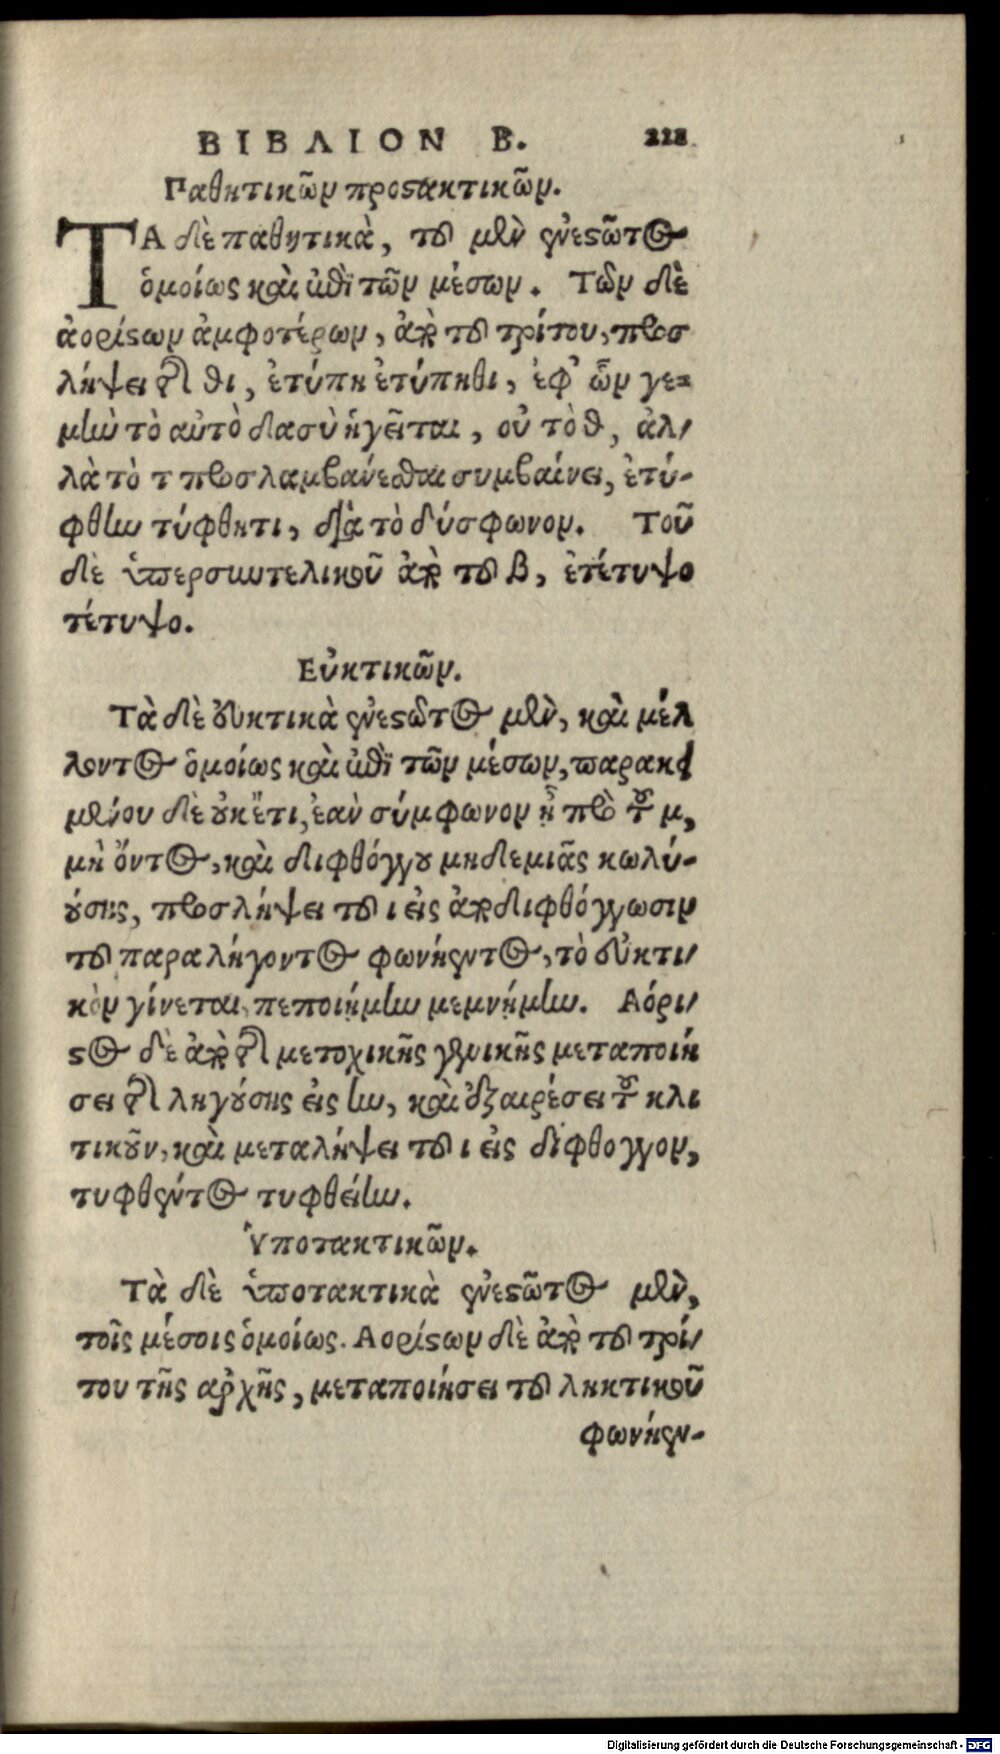 ΒΙΒΛΙΟΝ Β. 228
Παθητικῶν προστακτικῶν.
ΤΑ δὲ παθητικὰ, τοῦ μὲν ἐνεστῶτος
ὁμοίως καὶ ἐπὶ τῶν μέσων. Τῶν δὲ
ἀορίστων ἀμφοτέρων, ἀπὸ τοῦ τρίτου, προσ
λήψει τῆς θι, ἐτύπη ἐτύπηθι, ἐφ' ὧν γε=
μὴν τὸ αὐτὸ δασὺ ἡγεῖται, οὐ τὸ θ, ἀλ/
λὰ τὸ τ προσλαμβάνεσθαι συμβαίνει, ἐτύ-
φθην τύφθητι, διὰ τὸ δύσφωνον. Τοῦ
δὲ ὑπερσυντελικοῦ ἀπὸ τοῦ β, ἐτέτυψο
τέτυψο.
Εὐκτικῶν.
Τὰ δὲ εὐκτικὰ ἐνεστῶτος μὲν, καὶ μέλ
λοντος ὁμοίως καὶ ἐπὶ τῶν μέσων, παρακει
μένου δὲ οὐκέτι, ἐὰν σύμφωνον ᾖ πρὸ τοῦ μ,
μὴ ὄντος, καὶ διφθόγγου μηδεμιᾶς κωλύ-
ούσης, προσλήψει τοῦ ι εἰς ἀποδιφθόγγωσιν
τοῦ παραλήγοντος φωνήεντος, τὸ εὐκτι/
κὸν γίνεται, πεποιῄμην μεμνῄμην. Αόρι/
στος δὲ ἀπὸ τῆς μετοχικῆς γενικῆς μεταποιή
σει τῆς ληγούσης εἰς ην, καὶ ἐξαιρέσει τοῦ κλι
τικοῦ ν, καὶ μεταλήψει τοῦ ι εἰς δίφθογγον,
τυφθέντος τυφθείην.
Ὑποτακτικῶν.
Τὰ δὲ ὑποτακτικὰ ἐνεστῶτος μὲν,
τοῖς μέσοις ὁμοίως. Αορίστων δὲ ἀπὸ τοῦ τρί/
του τῆς ἀρχῆς, μεταποιήσει τοῦ ληκτικοῦ
φωνήεν-
Digitalisierung gefördert durch die Deutsche Forschungsgemeinschaft - DFG